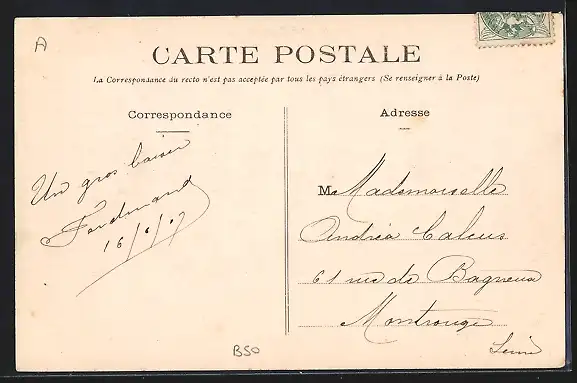 A
CARTE POSTALE
La Correspondance au recto n'est pas acceptée par tous les pays étrangers (Se renseigner à la Poste)
Correspondance
Un gros baiser
Ferdinand
16/6/07
Adresse
M Mademoiselle
Andréa
61 rue de Bagneux
Montrouge
Seine
B50